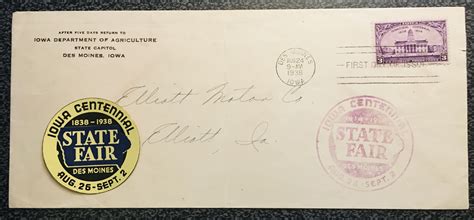 AFTER FIVE DAYS RETURN TO
IOWA DEPARTMENT OF AGRICULTURE
STATE CAPITOL
DES MOINES, IOWA
DES MOINES
AUG 24
9-AM
1938
IOWA
FIRST DAY OF ISSUE
3 3
IOWA CENTENNIAL
1838 - 1938
STATE
FAIR
DES MOINES
AUG. 26-SEPT. 2
Elliott Motor Co
Elliott, Ia.
IOWA CENTENNIAL
STATE
FAIR
AUG. 26-SEPT. 2